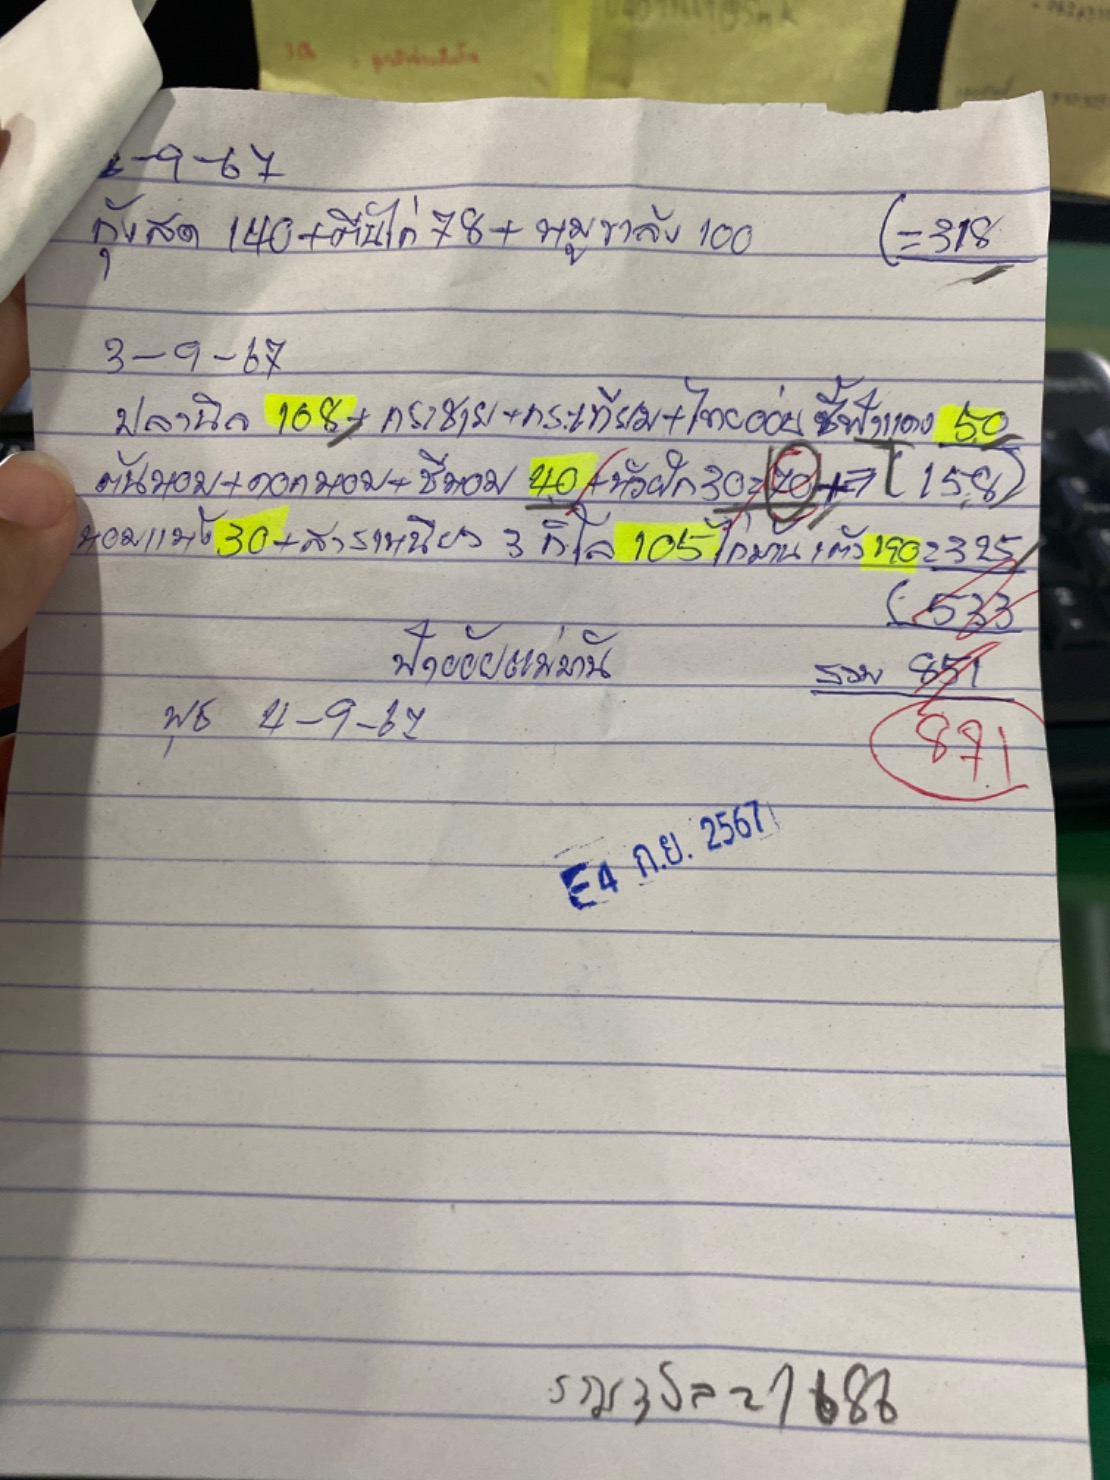 -9-67
กุ้งสด 140+ตีนไก่ 78+หมูชาลัง 100 (=318
3-9-67
ปลานิล 168+กระชาย+กระเทียม+ไทยอ่อน ชี้ฟ้าแดง 50
ต้นหอม+ดอกหอม+ชีหอม 40+หัวผัก 30=70+ (158)
หอมแมง 30+สาราเหนียว 3 กิโล 105 ไก่บ้าน 1 ตัว 190=325
(533
รวม 851
พุธ 4-9-67
871
E4 ก.ย. 2567
1686